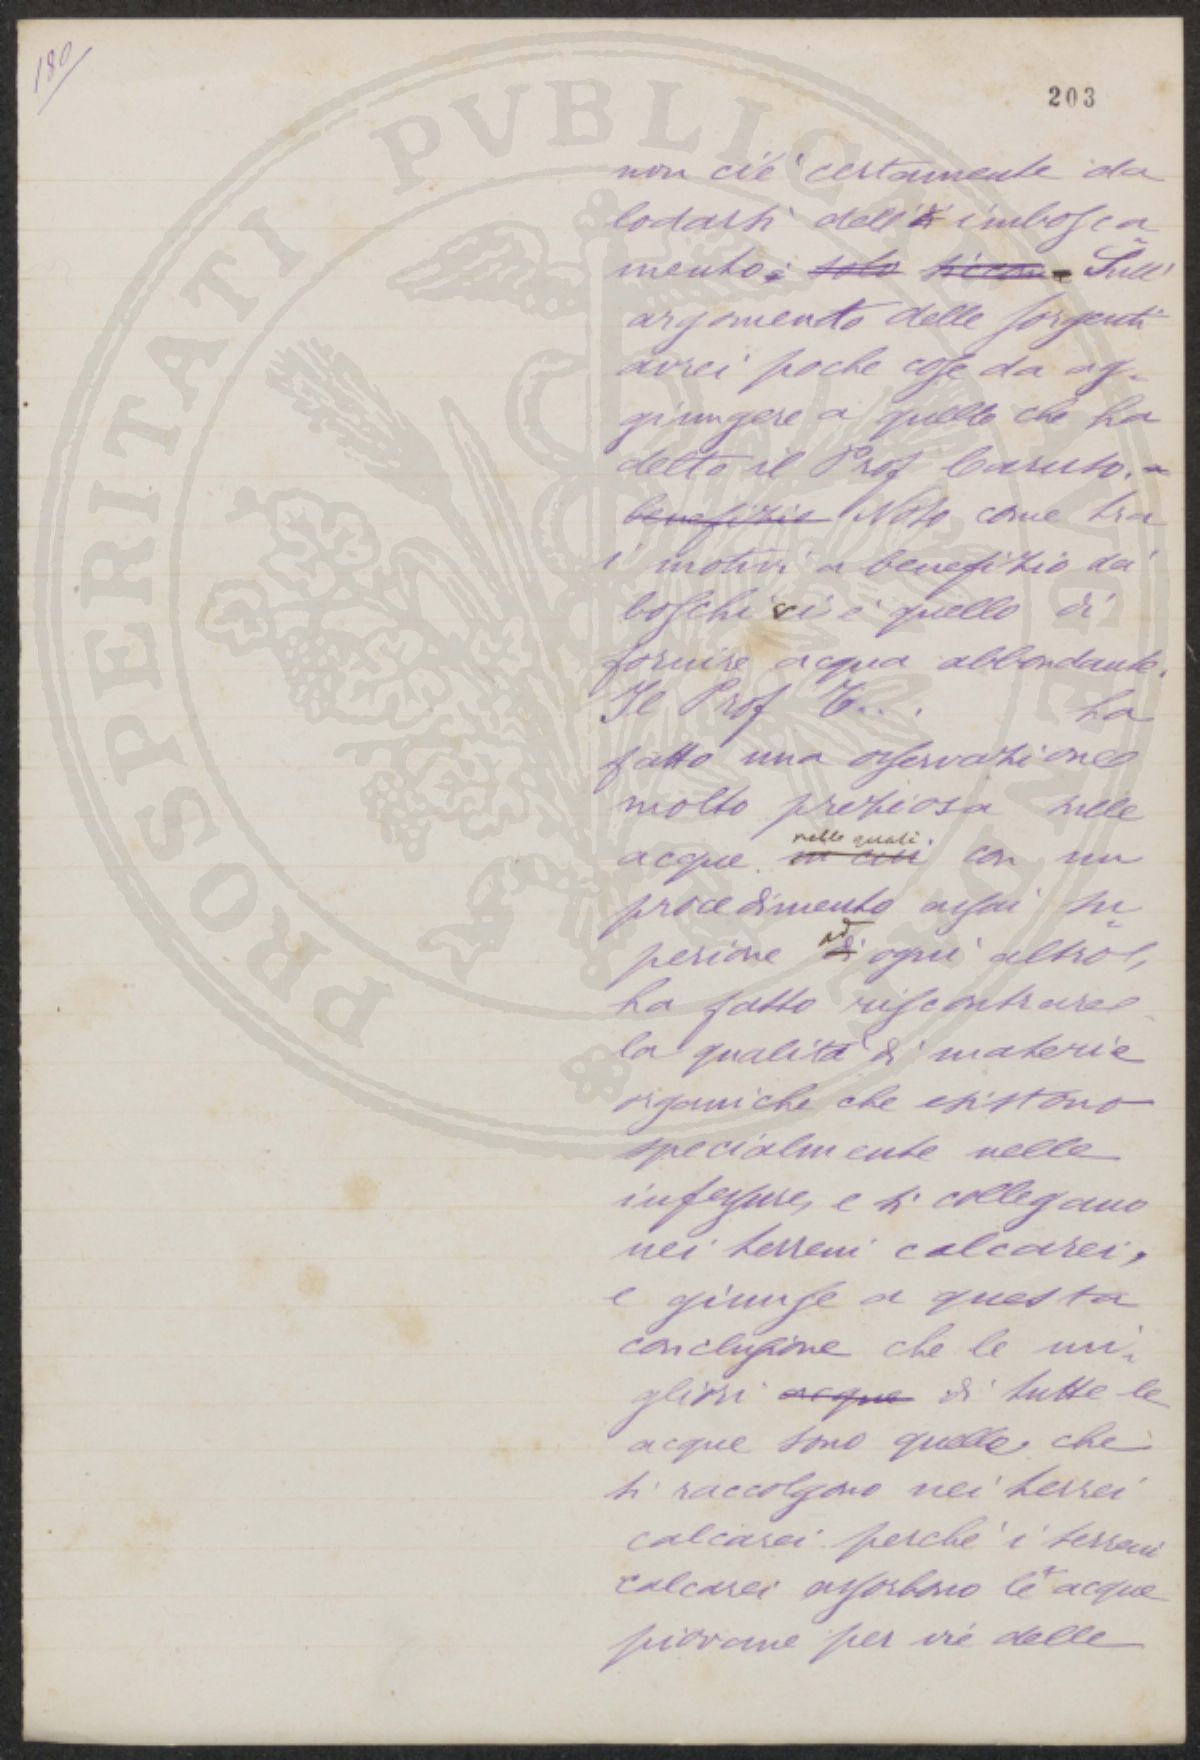 180
203
non c'è certamente da
lodarsi dell' imbosca
mento; solo siccom - Sull'
argomento delle sorgenti
avrei poche cose da ag-
giungere a quello che ha
detto il Prof Caruso. -
benefizio Noto come tra
i motivi a benefizio dei
boschi vi è quello di
fornire acqua abbondante.
Il Prof T... ha
fatto una osservazione
molto preziosa sulle
acque nelle quali in cui con un
procedimento assai su
periore ad di ogni altro,
ha fatto riscontrare
la qualità di materie
organiche che esistono
specialmente nelle
infessure, e si collegano
nei terreni calcarei,
e giunse a questa
conclusione che le mi-
gliori acque di tutte le
acque sono quelle che
si raccolgono nei terrei
calcarei perchè i terreni
calcarei assorbono le acque
piovane per vie delle
PROSPERITATI PVBLICAE